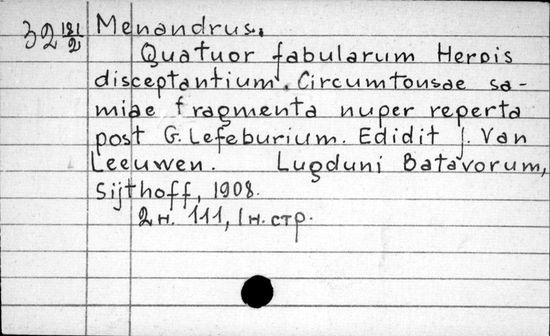 32 181/2 Menandrus.
Quatuor fabularum Herois
disceptantium. Circumtonsae sa-
miae fragmenta nuper reperta
post G. Lefeburium. Edidit J. Van
Leeuwen. Lugduni Batavorum,
Sijthoff, 1908.
2н. 111, 1н. стр.